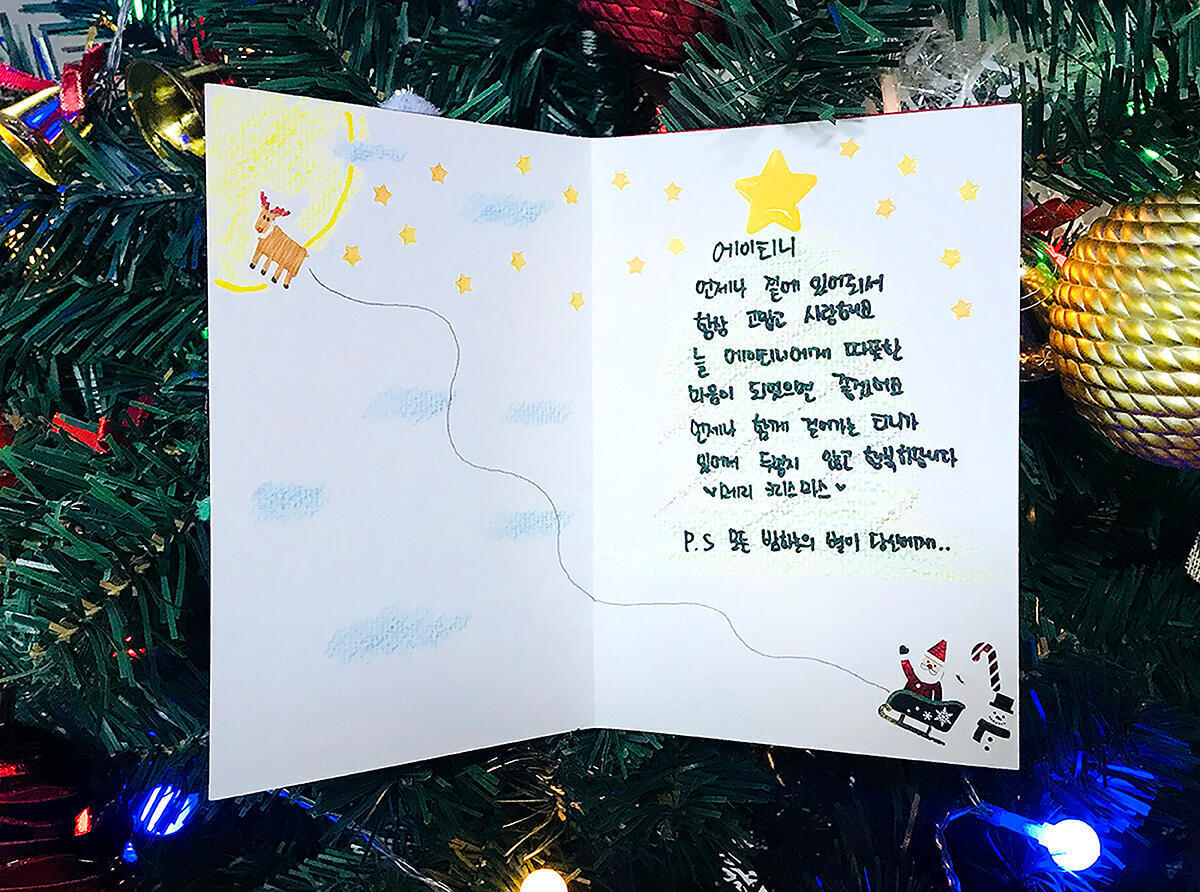 에이티니
언제나 곁에 있어줘서
항상 고맙고 사랑해요
늘 에이티니에게 따뜻한
마음이 되었으면 좋겠어요
언제나 함께 걸어가는 티니가
있어서 두렵지 않고 행복하답니다
♥메리 크리스마스♥
P.S 모든 밤하늘의 별이 당신에게..